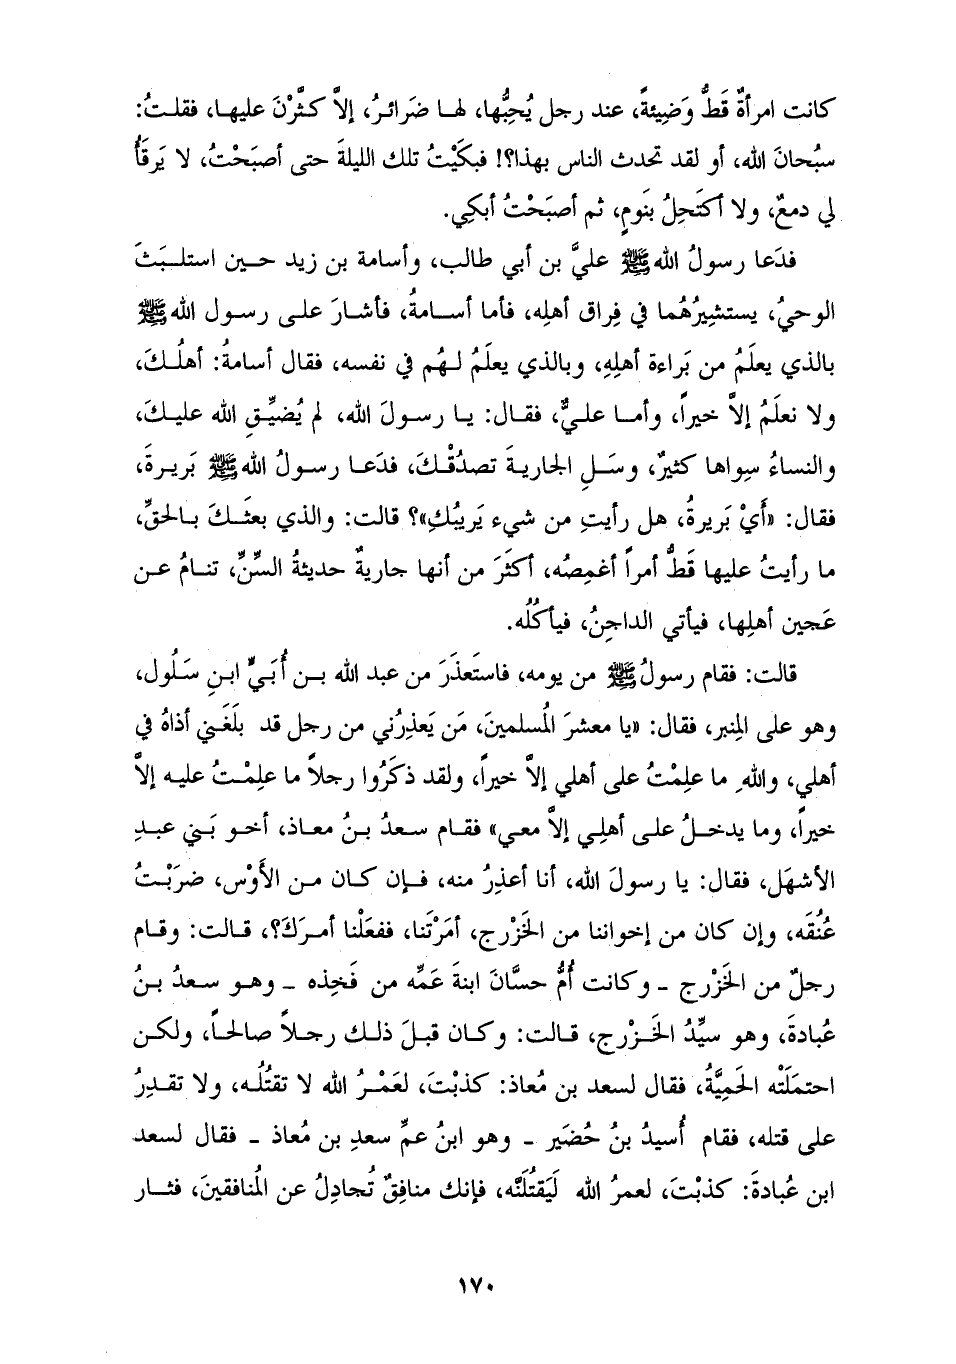 كانت امرأةٌ قَطُّ وَضِيئةً، عند رجل يُحِبُّها، لها ضَرائرُ، إلاَّ كَثَّرْنَ عليها، فقلتُ:
سبُحانَ الله، أو لقد تحدث الناس بهذا؟! فبكَيْتُ تلك الليلةَ حتى أصبَحْتُ، لا يَرقَأُ
لي دمعٌ، ولا أكتَحِلُ بنَومٍ، ثم أصبَحْتُ أبكِي.
فدَعا رسولُ الله ﷺ عليَّ بن أبي طالب، وأسامة بن زيد حين استلبَثَ
الوحيُ، يستشِيرُهُما في فِراق أهلِه، فأما أسامةُ، فأشارَ على رسول الله ﷺ
بالذي يعلَمُ من بَراءة أهلِهِ، وبالذي يعلَمُ لهُم في نفسه، فقال أسامةُ: أهلُكَ،
ولا نعلَمُ إلاَّ خيراً، وأما عليٌّ، فقال: يا رسولَ الله، لم يُضيِّقِ الله عليكَ،
والنساءُ سِواها كثيرٌ، وسَلِ الجاريةَ تصدُقْكَ، فدَعا رسولُ الله ﷺ بَريرةَ،
فقال: «أَيْ بَريرةُ، هل رأيتِ من شيء يَريبُكِ»؟ قالت: والذي بعثَكَ بالحقِّ،
ما رأيتُ عليها قَطُّ أمراً أغمِصُه، أكثَرَ من أنها جاريةٌ حديثةُ السِّنِّ، تنامُ عن
عَجين أهلِها، فيأتي الداجِنُ، فيأكُلُه.
قالت: فقام رسولُ ﷺ من يومه، فاستَعذَرَ من عبد الله بن أُبَيٍّ ابنِ سَلُول،
وهو على المِنبر، فقال: «يا معشرَ المُسلمينَ، مَن يَعذِرُني من رجل قد بلَغَني أذاهُ في
أهلي، واللهِ ما علِمْتُ على أهلي إلاَّ خيراً، ولقد ذكَرُوا رجلاً ما علِمْتُ عليه إلاَّ
خيراً، وما يدخلُ على أهلِي إلاَّ معي» فقام سعدُ بنُ معاذ، أخو بَني عبدِ
الأشهَل، فقال: يا رسولَ الله، أنا أعذِرُ منه، فإن كان من الأَوْس، ضربْتُ
عُنُقَه، وإن كان من إخواننا من الخَزْرج، أمَرْتَنا، ففعَلْنا أمرَكَ؟، قالت: وقام
رجلٌ من الخَزْرج - وكانت أُمُّ حسَّانَ ابنةَ عَمِّه من فَخِذه - وهو سعدُ بنُ
عُبادةَ، وهو سيِّدُ الخَزْرج، قالت: وكان قبلَ ذلك رجلاً صالحاً، ولكن
احتمَلَتْه الحَمِيَّةُ، فقال لسعد بن مُعاذ: كذبْتَ، لعَمْرُ الله لا تقتُلُه، ولا تقدِرُ
على قتله، فقام أُسيدُ بنُ حُضَير - وهو ابنُ عمِّ سعدِ بن مُعاذ - فقال لسعد
ابن عُبادةَ: كذبْتَ، لعمرُ الله لَيَقتُلَنَّه، فإنك منافِقٌ تُجادِلُ عن المُنافقينَ، فثار
١٧٠